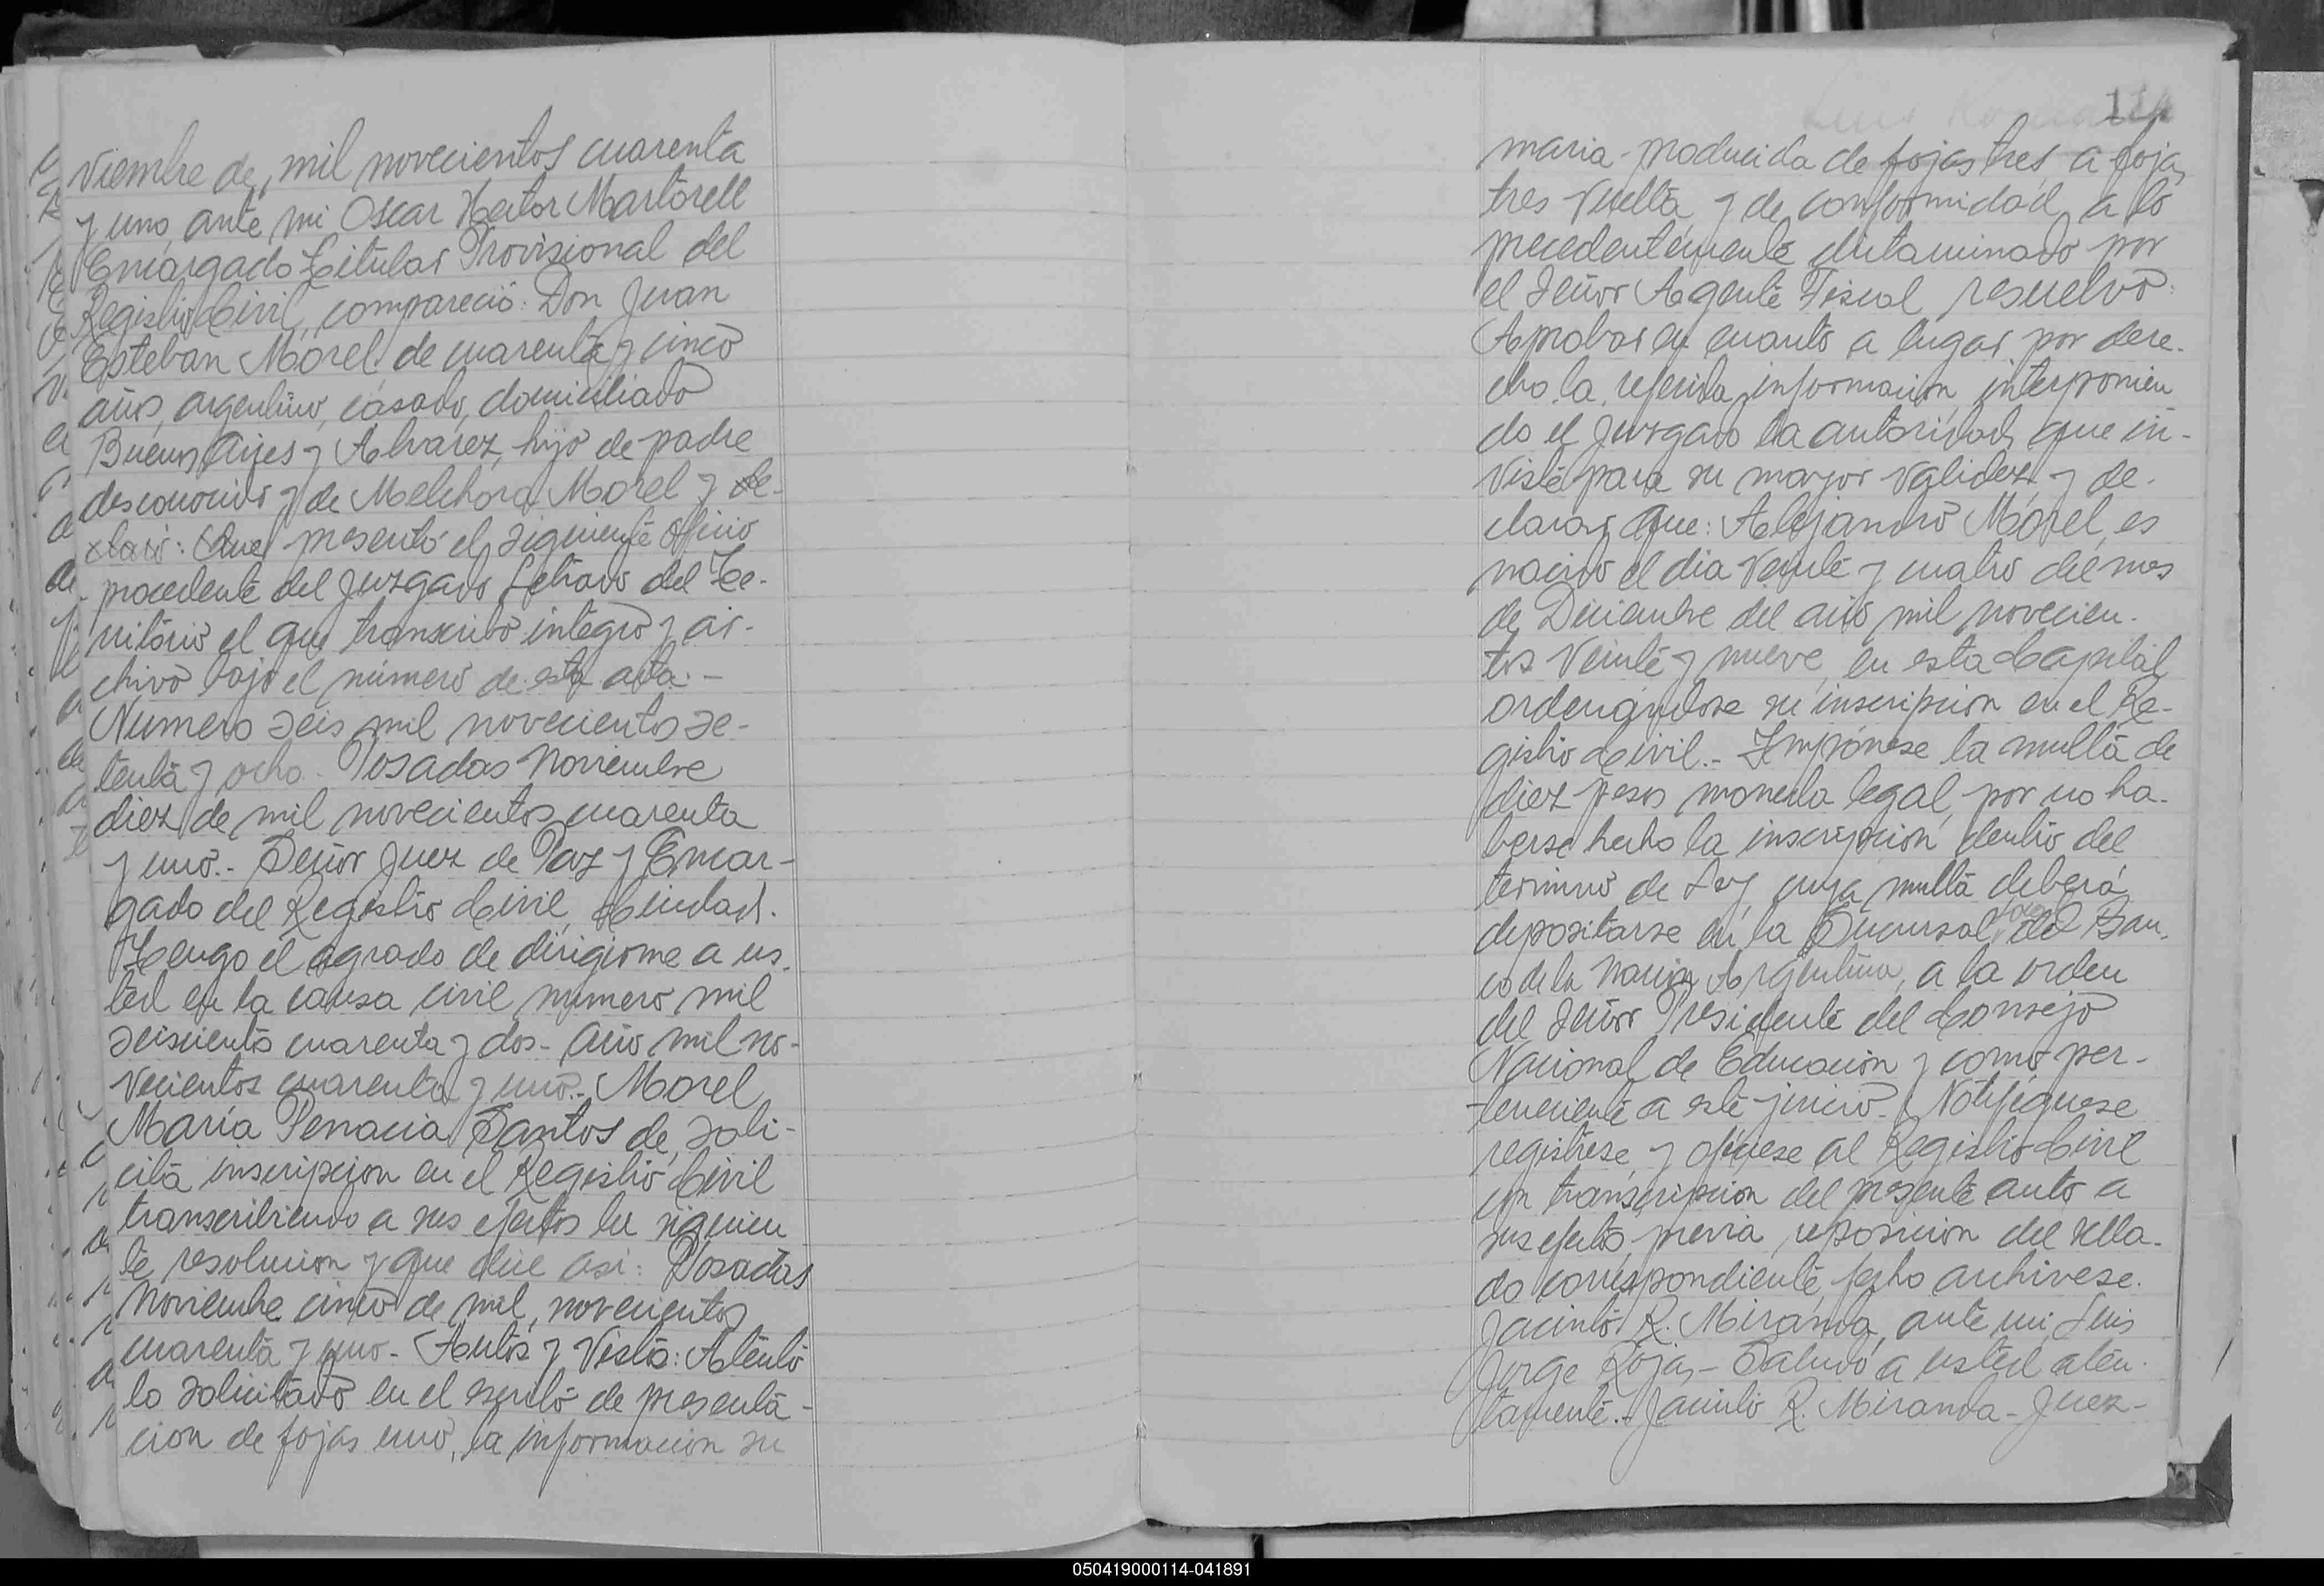 viembre de, mil novecientos cuarenta
y uno, ante mi Oscar Hector Martorell
Encargado Titular Provisional del
Registro Civil, compareció: Don Juan
Esteban Morel de cuarenta y cinco
años, argentino, casado, domiciliado
Buenos Aires y Alvarez, hijo de padre
desconocido y de Melchora Morel y de-
claró: Que presentó el siguiente oficio
procedente del Juzgado Letrado del Te-
rritorio el que transcribo integro y ar-
chivo bajo el número de esta acta.-
Numero seis mil novecientos se-
tenta y ocho.- Posadas Noviembre
diez de mil novecientos cuarenta
y uno.- Señor Juez de Paz y Encar-
gado del Registro Civil, Ciudad.
Tengo el agrado de dirigirme a us-
ted en la causa civil numero mil
seiscientos cuarenta y dos- año mil no-
vecientos cuarenta y uno.- Morel
María Penacia Santos de, soli-
cita inscripcion en el Registro Civil
transcribiendo a sus efectos la siguien
te resolucion y que dice asi: Posadas
Noviembre cinco de mil, novecientos
cuarenta y uno- Autos y Vistos: Atento
lo solicitado en el escrito de presenta-
cion de fojas uno, la informacion su
114
maria producida de fojas tres a fojas
tres vuelta y de conformidad a lo
precedentemente dictaminado por
el Señor Agente Fiscal, resuelvo:
Aprobar en cuanto a lugar por dere-
cho la referida informacion, interponien
do el Juzgado la autoridad que in-
viste para su mayor validez y de-
clarar que: Alejandro Morel, es
nacido el dia veinte y cuatro del mes
de Diciembre del año mil novecien-
tos veinte y nueve, en esta Capital
ordenandose su inscripcion en el Re-
gistro Civil.- Impónese la multa de
diez pesos moneda legal, por no ha-
berse hecho la inscripcion dentro del
termino de Ley, cuya multa deberá
depositarse en la Sucursal del Ban-
co de la Nacion Argentina, a la orden
del Señor Presidente del Consejo
Nacional de Educacion y como per-
teneciente a este juicio.- Notifiquese
registrese y ofíciese al Registro Civil
con transcripcion del presente auto a
sus efectos, previa reposicion del sella-
do correspondiente, fecho archivese.
Jacinto R. Miranda, ante mi Luis
Jorge Rojas- Saludo a usted aten-
tamente.- Jacinto R. Miranda- Juez-
050419000114-041891